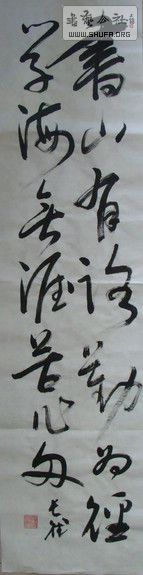 書山有路勤為徑
学海無涯苦作舟
書藝公社
WWW.SHUFA.ORG